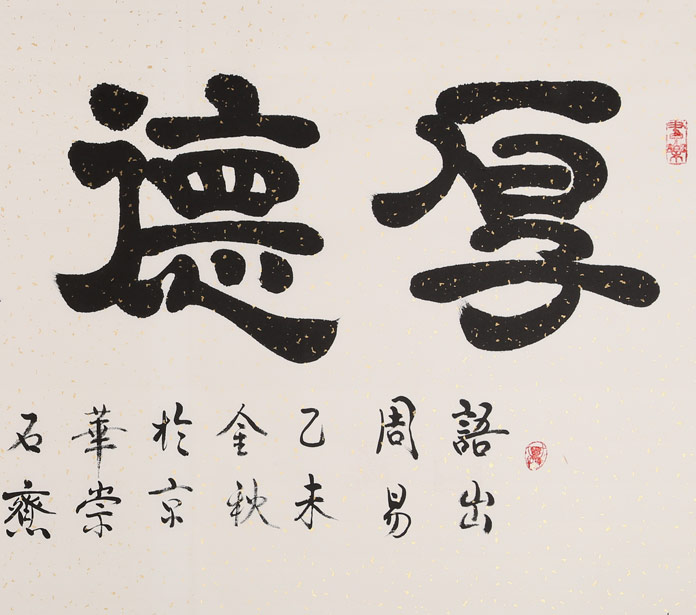 厚德
語出
周易
乙未
金秋
於京
華崇
石齋